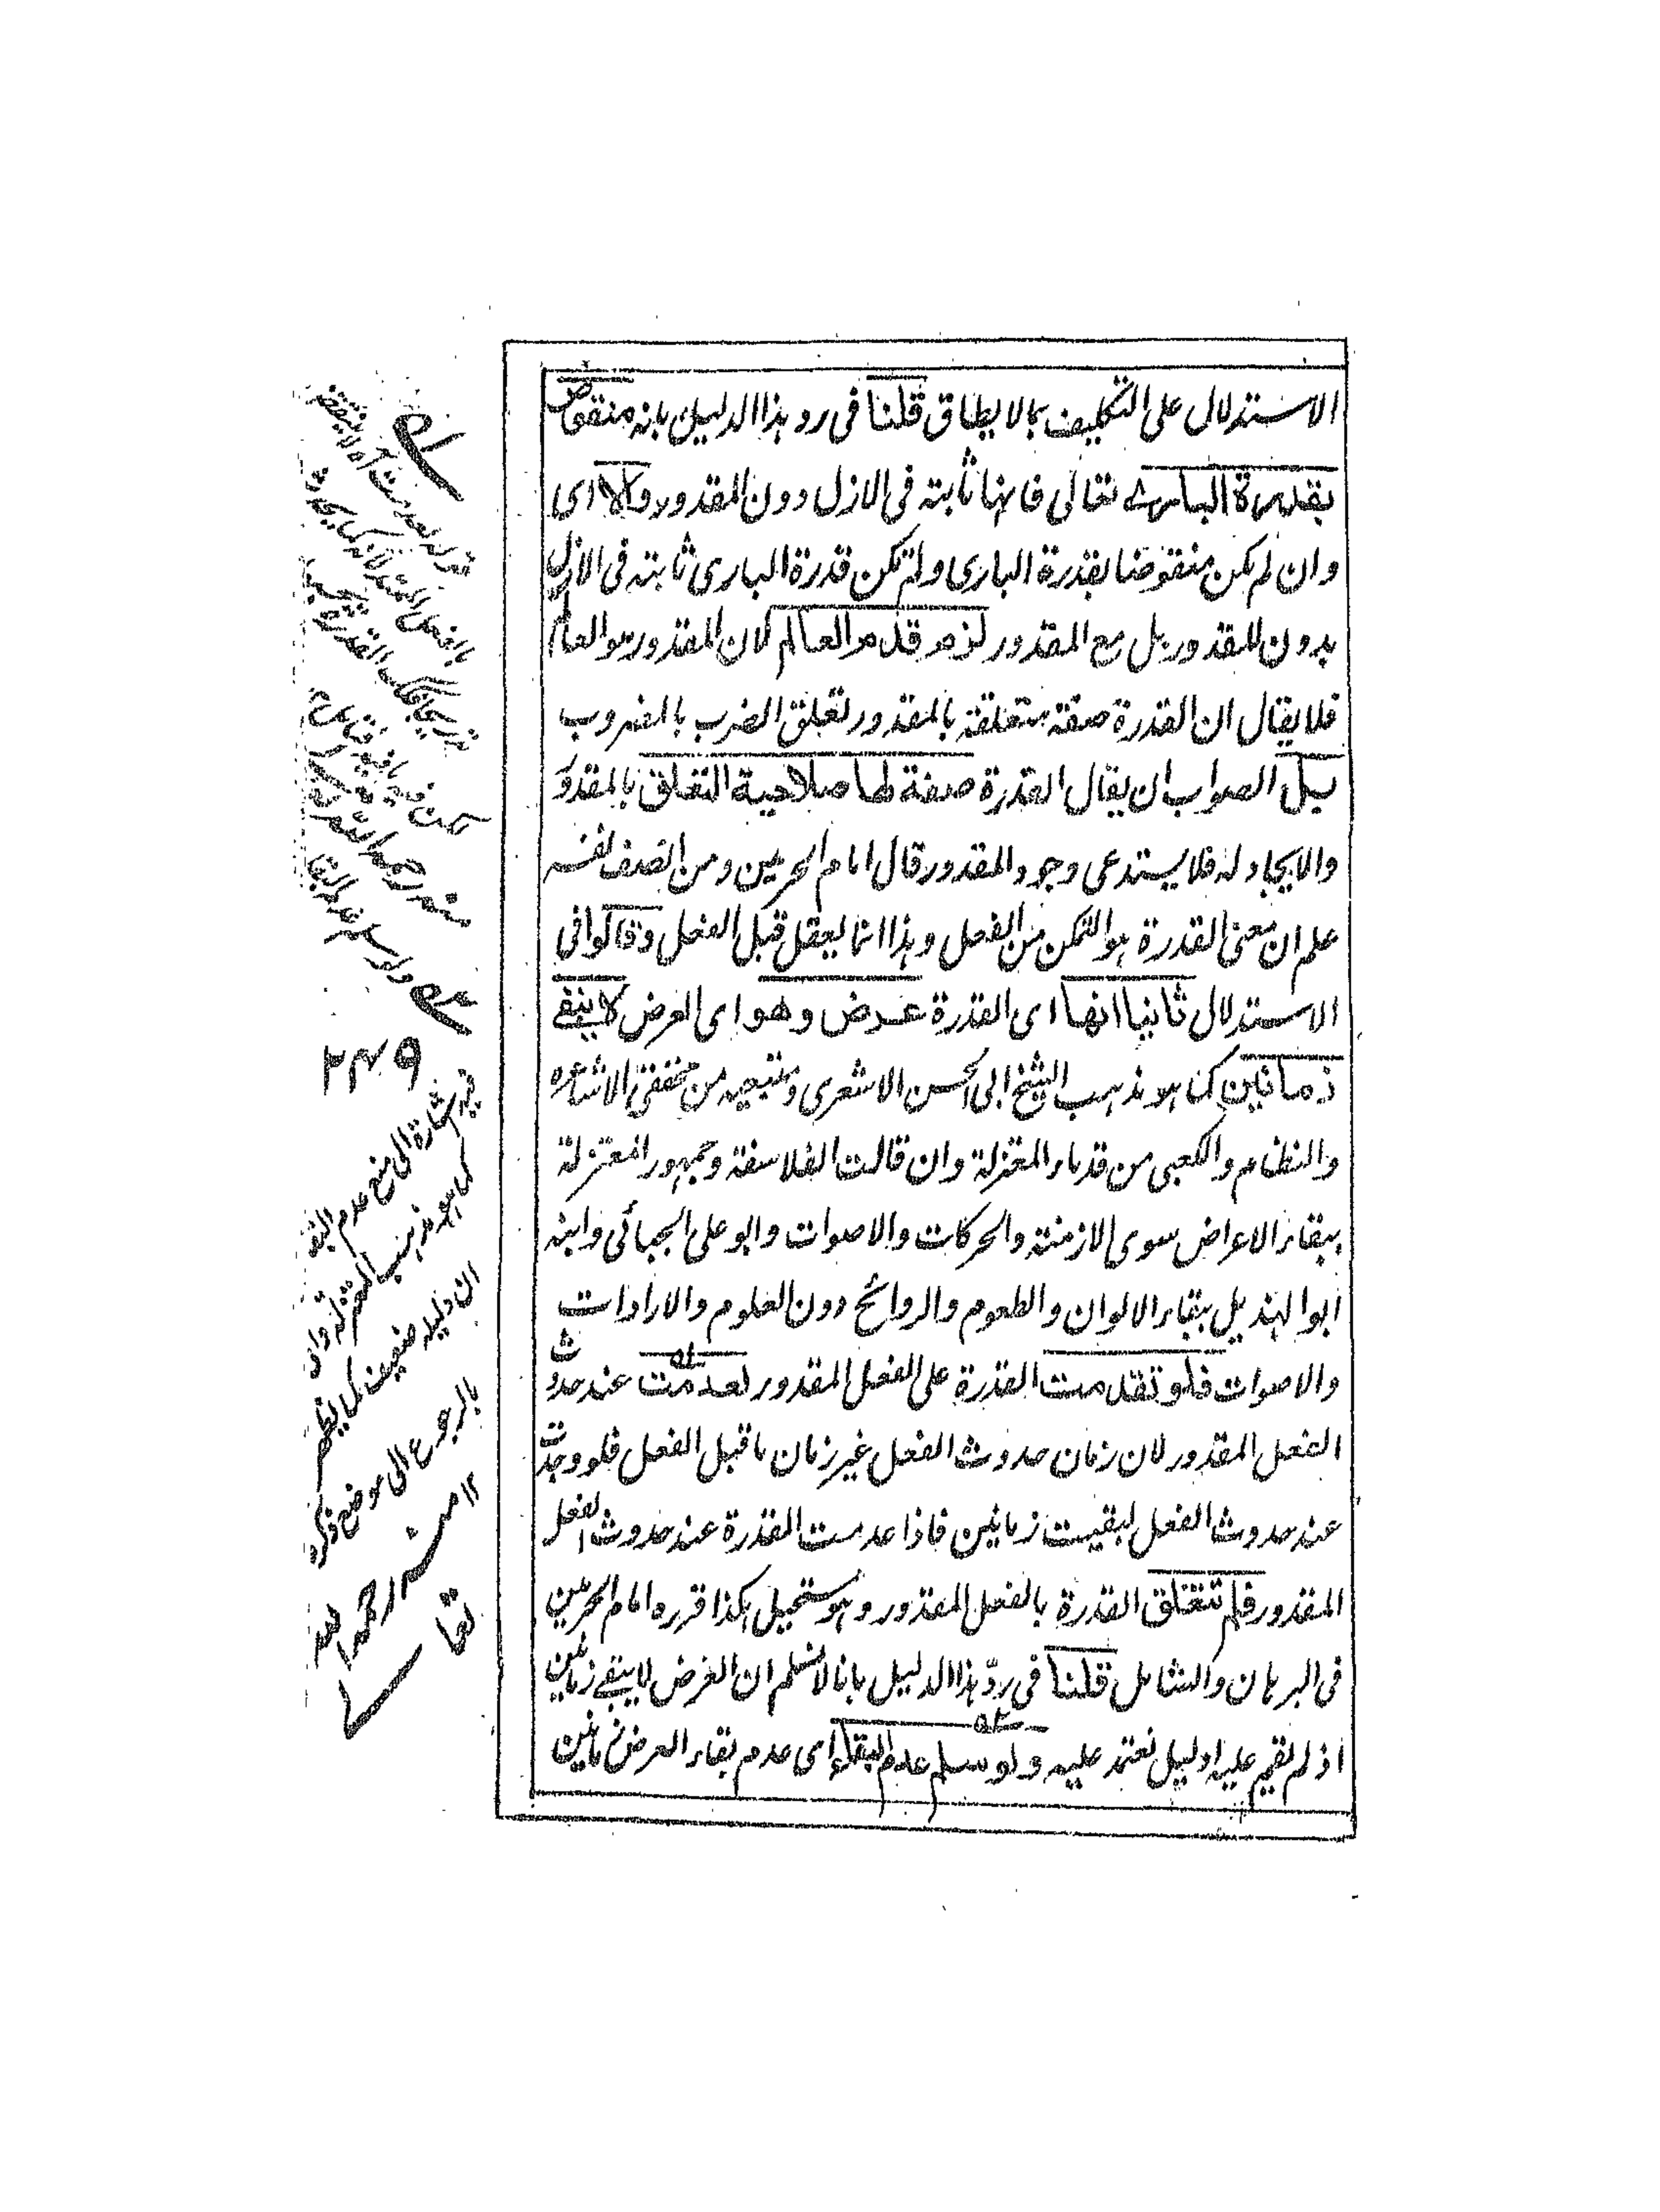 الاستدلال على التكليف بما لا يطاق قلنا فى رد هذا الدليل بانه منقوض
بقدرة البارى تعالى فانها ثابتة فى الازل دون المقدور والا اى
وان لم يكن منقوضا بقدرة البارى ولم تكن قدرة البارى ثابتة فى الازل
بدون المقدور بل مع المقدور لزم قدم العالم لان المقدور هو العالم
فلا يقال ان القدرة صفة متعلقة بالمقدور تعلق الضرب بالمضروب
بل الصواب ان يقال القدرة صفة لها صلاحية التعلق بالمقدور
والايجاد له فلا يستدعى وجود المقدور قال امام الحرمين ومن انصف نفسه
علم ان معنى القدرة هو التمكن من الفعل وهذا انما يعقل قبل الفعل وقالوا فى
الاستدلال ثانيا انها اى القدرة عرض وهو اى العرض لا يبقى
زمانين كما هو مذهب الشيخ ابى الحسن الاشعرى ومتبعيه من محققى الاشاعره
والنظام والكعبى من قدماء المعتزلة وان قالت الفلاسفة وجمهور المعتزلة
ببقاء الاعراض سوى الازمنة والحركات والاصوات وابو على الجبائى وابنه
ابو الهذيل ببقاء الالوان والطعوم والروائح دون العلوم والارادات
والاصوات فلو تقدمت القدرة على الفعل المقدور لعدمت عند حدوث
الفعل المقدور لان زمان حدوث الفعل غير زمان ما قبل الفعل فلو وجدت
عند حدوث الفعل لبقيت زمانين فاذا عدمت القدرة عند حدوث الفعل
المقدور فلم تتعلق القدرة بالفعل المقدور وهو مستحيل هكذا قرره امام الحرمين
فى البرهان والشامل قلنا فى ردّ هذا الدليل بانا لا نسلم ان العرض لا يبقى زمانين
اذ لم يقم عليه دليل نعتمد عليه ولو سلم عدم البقاء اى عدم بقاء العرض زمانين
فيه اشارة الى منع عدم البقاء
كما هو مذهب المعتزلة وان
دليله ضعيف كما يظهر
بالرجوع الى موضع ذكره
١٢ منه رحمه الله
تعالى